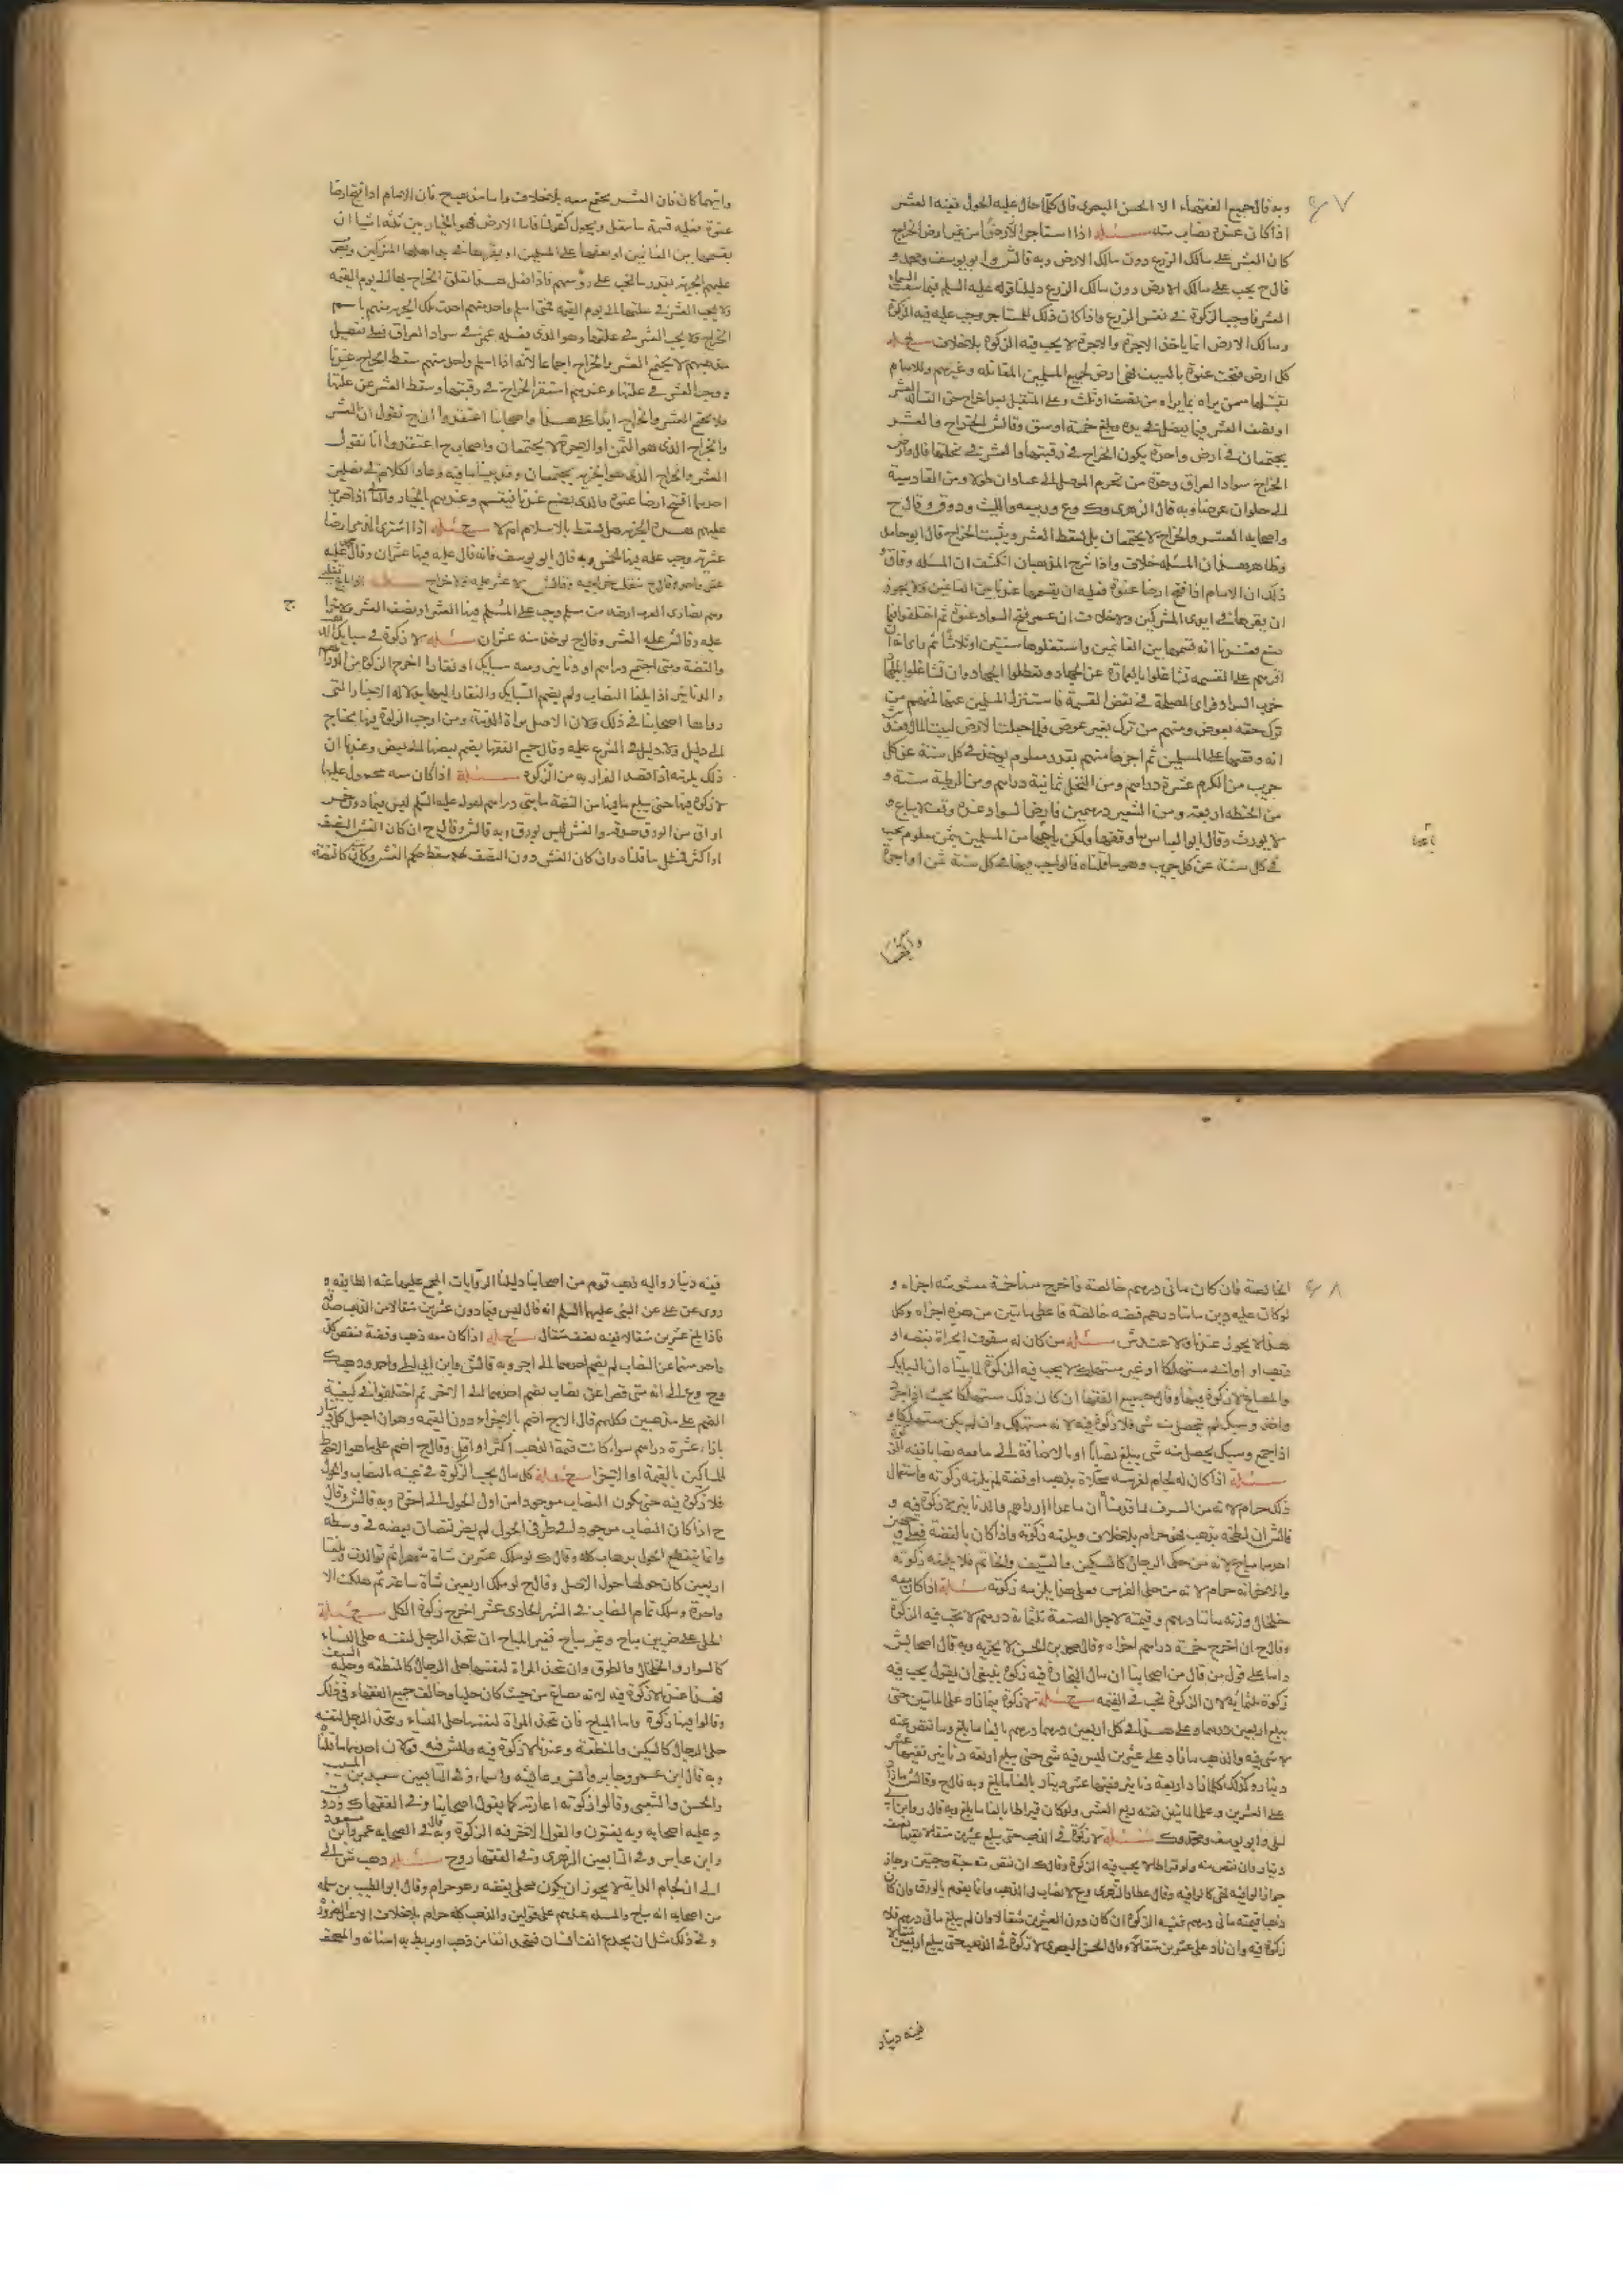 وبه قال جميع الفقهاء الا الحسن البصرى قال كلما حال عليه الحول ففيه العشر
اذا كان عنده نصاب مسئلة اذا استاجر ارضا من غير ارض الخراج
كان العشر على مالك الزرع دون مالك الارض وبه قال ش وابو يوسف ومحمد و
قال ح يجب على مالك الارض دون مالك الزرع دليلنا قوله عليه السلم فيما سقت السماء
العشر فاوجب الزكوة فى نفس الزرع واذا كان ذلك للمستاجر وجب عليه فيه الزكوة
ومالك الارض انما ياخذ الاجرة والاجرة لا يجب فيه الزكوة بلا خلاف مسئلة
كل ارض فتحت عنوة بالسيف فهى ارض لجميع المسلمين المقاتلة وغيرهم وللامام
او نصف العشر فيما يفضل فى يده وبلغ خمسة اوسق وقال ش الخراج والعشر
يجتمعان فى ارض واحدة يكون الخراج فى رقبتها والعشر فى غلتها قال وارض
الخراج سواد العراق وحده من تخوم الموصل الى عبادان طولا ومن القادسية
الى حلوان عرضا وبه قال الزهرى وك وع وربيعه والليث و وق وقال ح
واصحابه العشر والخراج لا يجتمعان بل يسقط العشر ويثبت الخراج قال ابو حامد
وظاهر هذا ان المسئله خلاف واذا شرح المذهبان انكشف ان المسئله وفاق
ذلك ان الامام اذا فتح ارضا عنوة فعليه ان يقسمها عندنا بين الغانمين ولا يجوز
ان يقرها فى ايدى المشركين ولا خلاف ان عمر فتح السواد عنوة ثم اختلفوا فيما
صنع فعندنا انه قسمها بين الغانمين واستغلوها سنتين او ثلاثا ثم راى انه ان
اقرهم على القسمه تشاغلوا بالعمارة عن الجهاد وتعطلوا الجهاد وان تشاغلوا بالجهاد
خرب السواد فراى المصلحة فى نقض القسمة فاستنزل المسلمين عنها فمنهم من
ترك حقه بعوض ومنهم من ترك بغير عوض فلما حصلت الارض لبيت المال فعندى
انه وقفها على المسلمين ثم اجرها منهم بقدر معلوم يوخذ فى كل سنة عن كل
جريب من الكرم عشرة دراهم ومن النخل ثمانية دراهم ومن الرطبة ستة و
من الحنطه اربعة ومن الشعير درهمين فارض السواد عنده وقف لا يباع و
لا يورث وقال ابو العباس ما وقفها ولكن باعها من المسلمين بثمن معلوم يجب
فى كل سنة عن كل جريب وهو ما قلناه فالواجب فيها فى كل سنة ثمن او اجرة
وايهما كان
وايهما كان فان العشر يجتمع معه بلا خلاف واما مذهب ح فان الامام اذا فتح ارضا
عنوة فعليه قسمة ما ينقل ويحول كقولنا فاما الارض فهو بالخيار بين ثلثه اشيا ان
يقسمها بين الغانمين او يقفها على المسلمين او يقرها فى يد اهلها المشركين ويضرب
عليهم الجزيه بقدر ما يجب على رؤسهم فاذا فعل هذا تعلق الخراج بها الى يوم القيمه
ولا يجب العشر فى غلتها الى يوم القيمه فمتى اسلم واحد منهم اخذت تلك الجزيه منهم باسم
الخراج ولا يجب العشر فى غلتها وهو الذى فعله عمر فى سواد العراق فعلى تفصيل
مذهبهم لا يجتمع العشر والخراج اجماعا لانه اذا اسلم واحد منهم سقط الخراج عندنا
ووجب العشر فى غلتها وعندهم استقر الخراج فى رقبتها وسقط العشر عن غلتها
فلا يجتمع العشر والخراج ابدا على هذا واصحابنا اعتقدوا ان ح تقول ان العشر
والخراج الذى هو الثمن او الاجرة لا يجتمعان واصحاب ح اعتقدوا انا نقول
العشر والخراج الذى هو الجزيه يجتمعان وقد بينا ما فيه وعاد الكلام فى فصلين
احدهما اذا فتح ارضا عنوة ما الذى يصنع عندنا يقسم وعندهم بالخيار والثانى اذا ضرب
عليهم هذه الجزيه هل تسقط بالاسلام ام لا مسئلة اذا اشترى الذمى ارضا
عشريه وجب عليه فيها الخمس وبه قال ابو يوسف فانه قال عليه فيها عشران وقال محمد عليه
عشر واحد وقال ح تنقلب خراجيه وقال ش لا عشر عليه ولا خراج مسئلة اذا باع تغلبى
وهم نصارى العرب ارضه من مسلم وجب على المسلم فيها العشر او نصف العشر ولا خراج
عليه وقال ش عليه العشر وقال ح يوخذ منه عشران مسئلة لا زكوة فى سبايك الذهب
والفضة ومتى اجتمع دراهم او دنانير ومعه سبايك او نقار اخرج الزكوة من الدراهم
والدنانير اذا بلغا النصاب ولم يضم السبايك والنقار اليها دليلنا الاخبار التى
رواها اصحابنا فى ذلك ولان الاصل براة الذمة ومن اوجب الزكوة فيها يحتاج
الى دليل ولا دليل فى الشرع عليه وقال جميع الفقها يضم بعضها الى بعض وعندنا ان
ذلك يلزمه اذا قصد الفرار به من الزكوة مسئلة اذا كان معه دراهم محمول عليها
لا زكوة فيها حتى يبلغ ما فيها من الفضة مايتى دراهم لقوله عليه السلم ليس فيما دون خمس
اواق من الورق صدقه والغش ليس بورق وبه قال ش وقال ح ان كان الغش النصف
او اكثر فمثل ما قلناه وان كان الغش دون النصف سقط حكم الغش وكان كالفضة
الخالصة فان كان ماتى درهم خالصة فاخرج منها خمسة مغشوشه اجزاه و
لو كان عليه دين ماتا درهم فضه خالصة فاعطى ماتين من هذه اجزاه وكل
هذا لا يجوز عندنا ولا عند ش مسئلة من كان له سيوف مجراة بفضه او
ذهب او اوانى مستهلكا او غير مستهلك لا يجب فيه الزكوة لما بيناه ان السبايك
والمصاغ لا زكوة فيها وقال جميع الفقها ان كان ذلك مستهلكا بحيث اذا جرد
واخذ وسبك لم يتحصل منه شى فلا زكوة فيه لانه مستهلك وان لم يكن مستهلكا و
اذا جمع وسبك يحصل منه شى يبلغ نصابا او بالاضافة الى ما معه نصابا فيه الزكوة
مسئلة اذا كان له لجام لفرسه محلاة بذهب او فضة لم يلزمه زكوته واستعمال
ذلك حرام لانه من السرف لما قدمنا ان ما عدا الدراهم والدنانير لا زكوة فيه و
قال ش ان لطخه بذهب فهو حرام بلا خلاف ويلزمه زكوته واذا كان بالفضة فعلى وجهين
احدهما مباح لانه من حلى الرجال كالسكين والسيف والخاتم فلا يلزمه زكوته
والاخر انه حرام لانه من حلى الفرس فعلى هذا يلزمه زكوته مسئلة اذا كان معه
خلخال وزنه ماتا درهم وقيمته لاجل الصنعة ثلثماية درهم لا تجب فيه الزكوة
وقال ح ان اخرج خمسة دراهم اجزاه وقال محمد بن الحسن لا يجزيه وبه قال اصحاب ش
واما على قول من قال من اصحابنا ان مال التجارة فيه زكوة ينبغى ان يقول يجب فيه
زكوة ثلثماية لان الزكوة تجب فى القيمه مسئلة لا زكوة فيما زاد على الماتين حتى
يبلغ اربعين درهما وعلى هذا فى كل اربعين درهما درهم بالغا ما بلغ وما نقص عنه
لا شى فيه والذهب ما زاد على عشرين ليس فيه شى حتى يبلغ اربعه دنانير ففيها عشر
دينار وكذلك كلما زاد اربعة دنانير ففيها عشر دينار بالغا ما بلغ وبه قال ح وقال ش ما زاد
على العشرين وعلى الماتين ففيه ربع العشر ولو كان قيراطا بالغا ما بلغ وبه قال وابن ابى
ليلى وابو يوسف ومحمد وك مسئلة لا زكوة فى الذهب حتى يبلغ عشرين مثقالا ففيها نصف
دينار فان نقص منه ولو قيراطا لا يجب فيه الزكوة وقال ك ان نقص منه حبة وحبتين وجاز
جواز الوافيه فهى كالوافيه وقال عطا والزهرى وع لا نصاب فى الذهب وانما يقوم بالورق وان كان
ذهبا قيمته ماتى درهم ففيه الزكوة ان كان دون العشرين مثقالا وان لم يبلغ ماتى درهم فلا
زكوة فيه وان زاد على عشرين مثقالا وقال الحسن البصرى لا زكوة فى الذهب حتى يبلغ اربعين مثقالا
ففيه دينار
ففيه دينار واليه ذهب قوم من اصحابنا دليلنا الروايات المجمع عليها عند الطايفه و
روى عن على عن النبى عليهما السلم انه قال ليس فيما دون عشرين مثقالا من الذهب صدقه
فاذا بلغ عشرين مثقالا ففيه نصف مثقال مسئلة اذا كان معه ذهب وفضة ينقص كل
واحد منهما عن النصاب لم يضم احدهما الى الاخر وبه قال ش وابن ابى ليلى واحمد وذهب ك
وح وع الى انه متى قصرا عن نصاب يضم احدهما الى الاخر ثم اختلفوا فى كيفية
الضم على مذهبين فكلهم قال الا ح اضم بالاجزاء دون القيمه وهو ان اجعل كل دينار
بازاء عشرة دراهم سواء كانت قيمة الذهب اكثر او اقل وقال ح اضم على ما هو الاحوط
للمساكين بالقيمة او الاجزا مسئلة كل مال يجب الزكوة فى عينه بالنصاب والحول
فلا زكوة فيه حتى يكون النصاب موجودا من اول الحول الى اخره وبه قال ش وقال
ح اذا كان النصاب موجود فى طرفى الحول لم يضر نقصان بعضه فى وسطه
وانما ينقطع الحول بذهاب كله وقال ك لو ملك عشرين شاة شهرا ثم توالدت وبلغت
اربعين كان حولها حول الاصل وقال ح لو ملك اربعين شاة ساعة ثم هلكت الا
واحدة وملك تمام النصاب فى الشهر الحادى عشر اخرج زكوة الكل مسئلة
الحلى على ضربين مباح وغير مباح فغير المباح ان يتخذ الرجل لنفسه حلى النساء
كالسوار والخلخال والطوق وان تتخذ المراة لنفسها حلى الرجال كالمنطقه وحليه السيف
فهذا عندنا لا زكوة فيه لانه مصاغ من حيث كان حليا وخالف جميع الفقهاء فى ذلك
وقالوا فيها زكوة واما المباح فان تتخذ المراة لنفسها حلى النساء ويتخذ الرجل لنفسه
حلى الرجال كالسكين والمنطقة وعندنا لا زكوة فيه ول ش فيه قولان احدهما ما قلناه
وبه قال ابن عمر وجابر وانس وعايشه واسماء وفى التابعين سعيد بن المسيب
والحسن والشعبى وقالوا زكوته اعارته كما يقول اصحابنا وفى الفقهاء ك و ود و ق
وعليه اصحابه وبه يفتون والقول الاخر فيه الزكوة وبه قال فى الصحابه عمر وابن مسعود
وابن عباس وفى التابعين الزهرى وفى الفقها ر و ح مسئلة ذهب ش الى
الى ان لجام الدابة لا يجوز ان يكون محلى بفضه وهو حرام وقال ابو الطيب بن سلمه
من اصحابه انه مباح والمسله عندهم على قولين والذهب كله حرام بلا خلاف الا عند الضرورة
وفى ذلك مثل ان يجدع انف انسان فيتخذ انفا من ذهب او يربط به اسنانه والمصحف